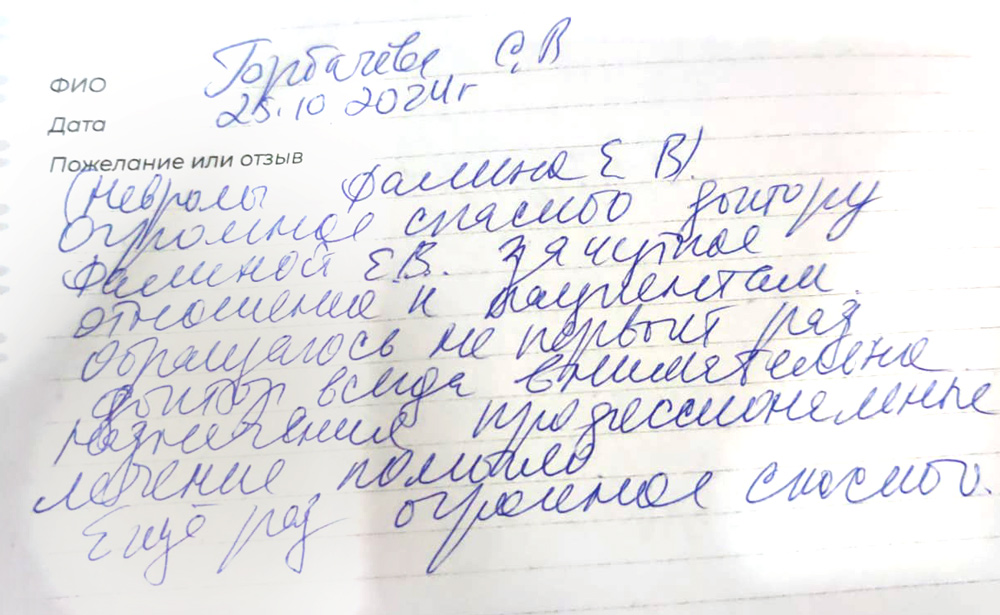 ФИО Горбачёва С,В
Дата 25.10 2024г
Пожелание или отзыв
(Невролог Фамина Е В)
Огромное спасибо доктору
Фаминой Е.В. За чуткое
отношение к пациентам.
Обращаюсь не первый раз
Доктор всегда внимательна
назначения профессиональные
лечение помогло
Ещё раз огромное спасибо.